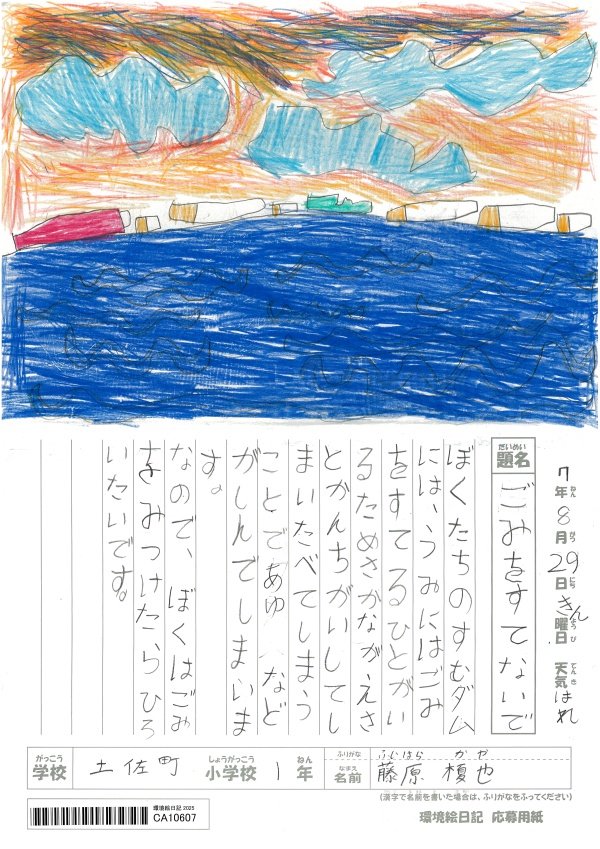 7年8月29日きん曜日 天気はれ
題名 ごみをすてないで
ぼくたちのすむダム
には、うみにはごみ
をすてるひとがい
るためさかながえさ
とかんちがいしてし
まいたべてしまう
ことであゆ など
がしんでしまいま
す。
なので、ぼくはごみ
をみつけたらひろ
いたいです。
学校 土佐町 小学校 1年
ふりがな ふじはら かや
名前 藤原 榎也
(漢字で名前を書いた場合は、ふりがなをふってください)
環境絵日記 2025
CA10607
環境絵日記 応募用紙